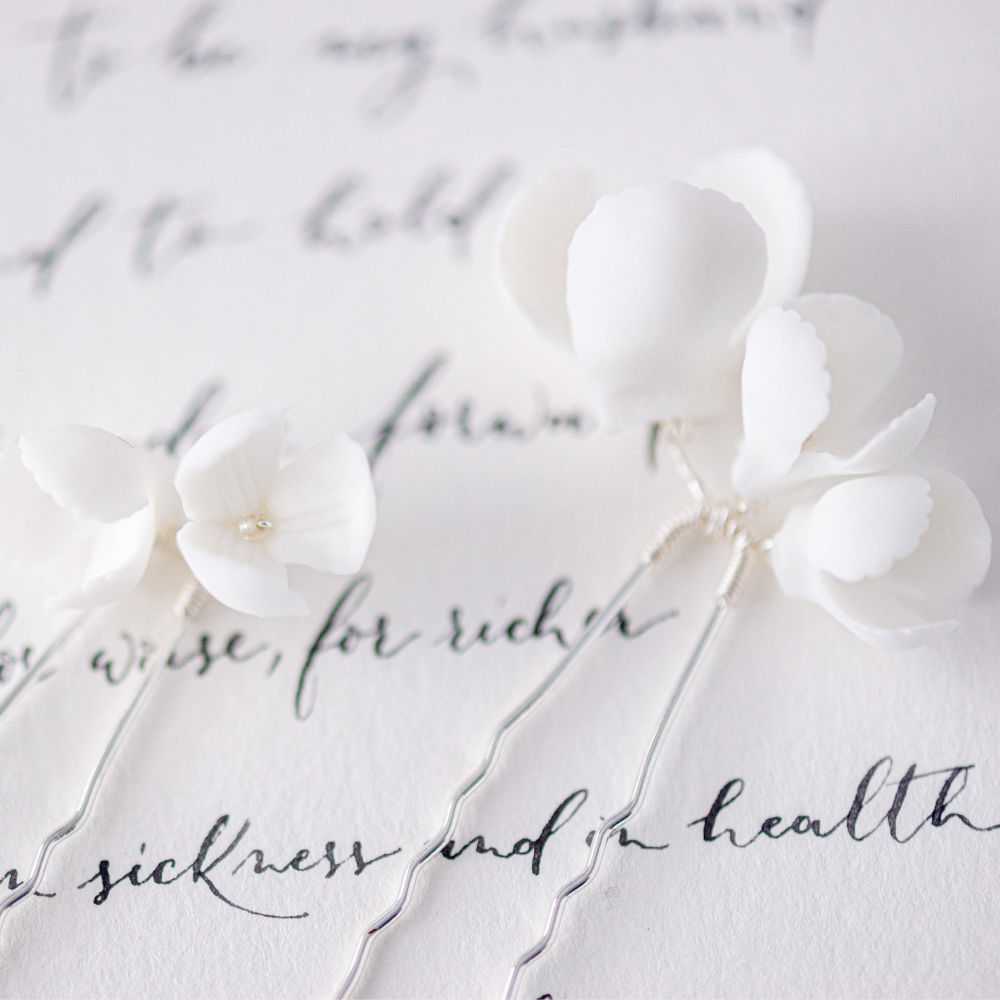 to be my husband
d to hold
d forw
for worse, for richer
in sickness and in health